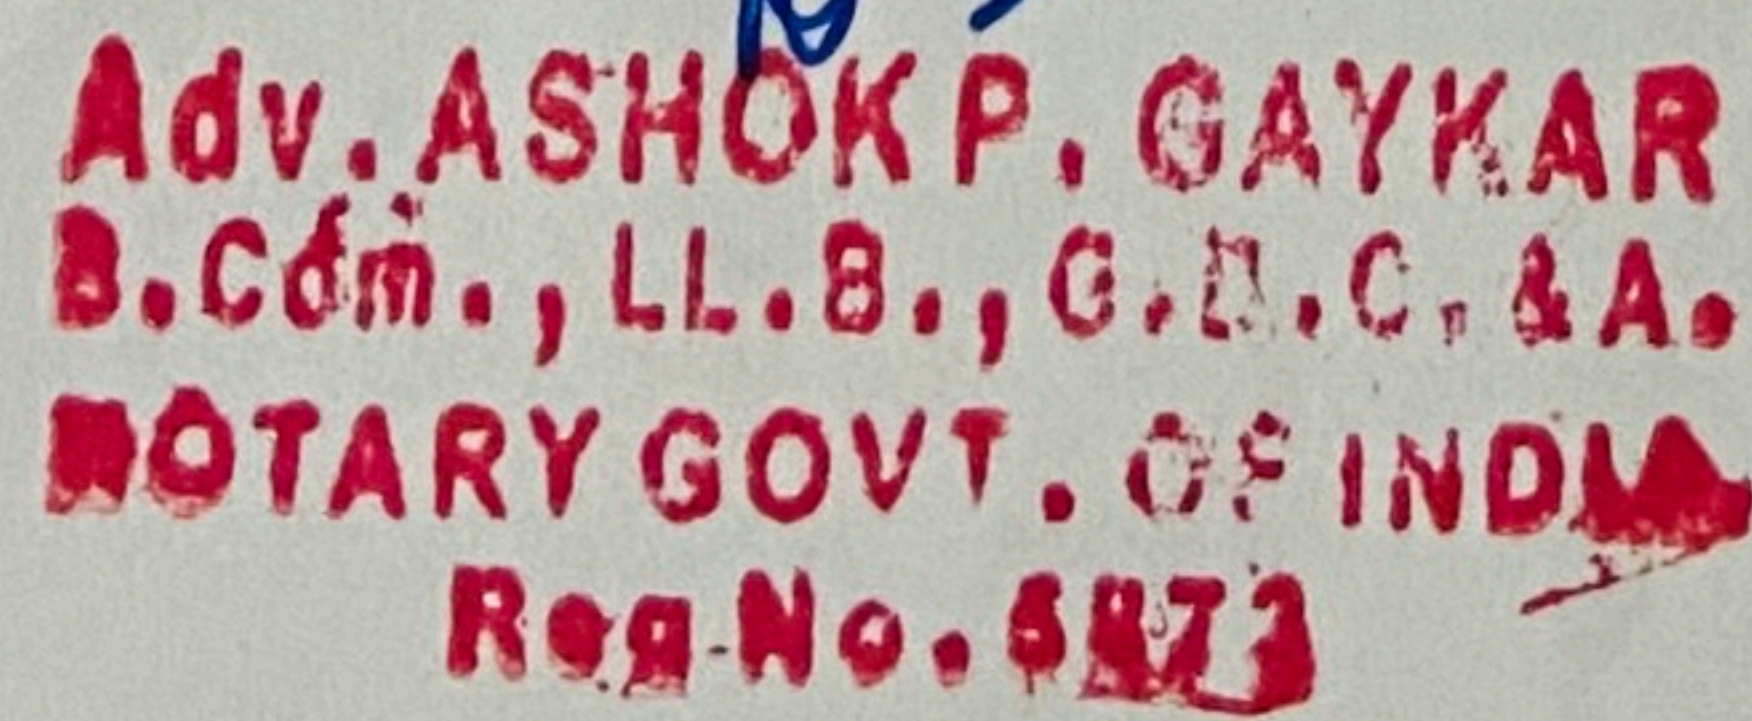 Adv. ASHOK P. GAYKAR
B.Com., LL.B., G.D.C. & A.
NOTARY GOVT. OF INDIA
Reg No.